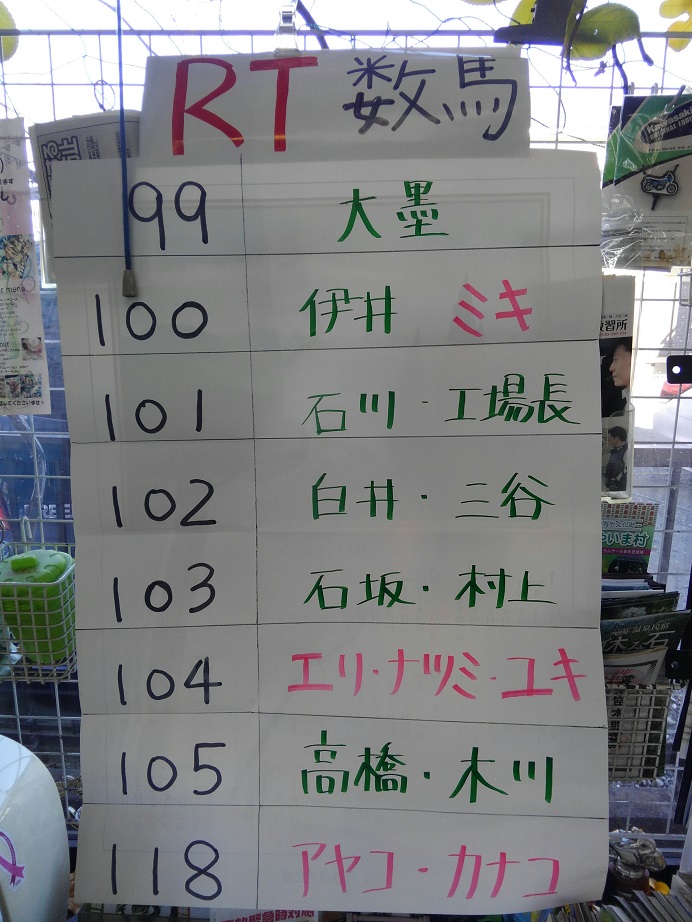 RT 数馬
99 大墨
100 伊井 ミキ
101 石川・工場長
102 白井・三谷
103 石坂・村上
104 エリ・ナツミ・ユキ
105 高橋・木川
118 アヤコ・カナコ
Kawasaki
教習所
いま村